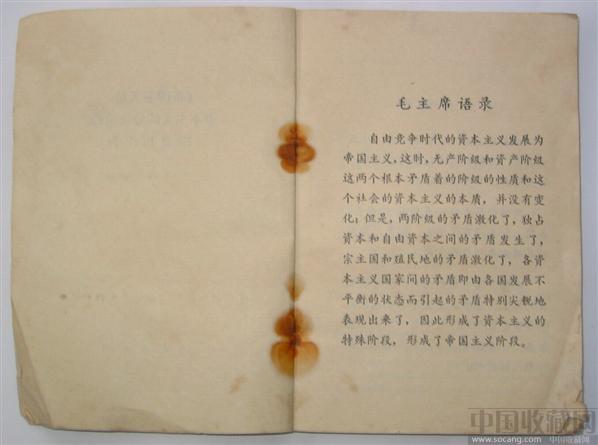 毛主席语录
自由竞争时代的资本主义发展为
帝国主义，这时，无产阶级和资产阶级
这两个根本矛盾着的阶级的性质和这
个社会的资本主义的本质，并没有变
化；但是，两阶级的矛盾激化了，独占
资本和自由资本之间的矛盾发生了，
宗主国和殖民地的矛盾激化了，各资
本主义国家间的矛盾即由各国发展不
平衡的状态而引起的矛盾特别尖锐地
表现出来了，因此形成了资本主义的
特殊阶段，形成了帝国主义阶段。
中国收藏网
www.socang.com 中国收藏网